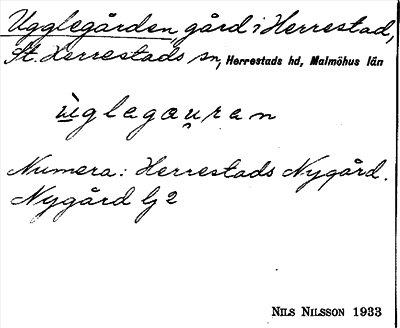 Ugglegården, gård i Herrestad,
St. Herrestads sn, Herrestads hd, Malmöhus län
ùglegau̯ran
Numera: Herrestads Nygård.
Nygård lj 2
NILS NILSSON 1933